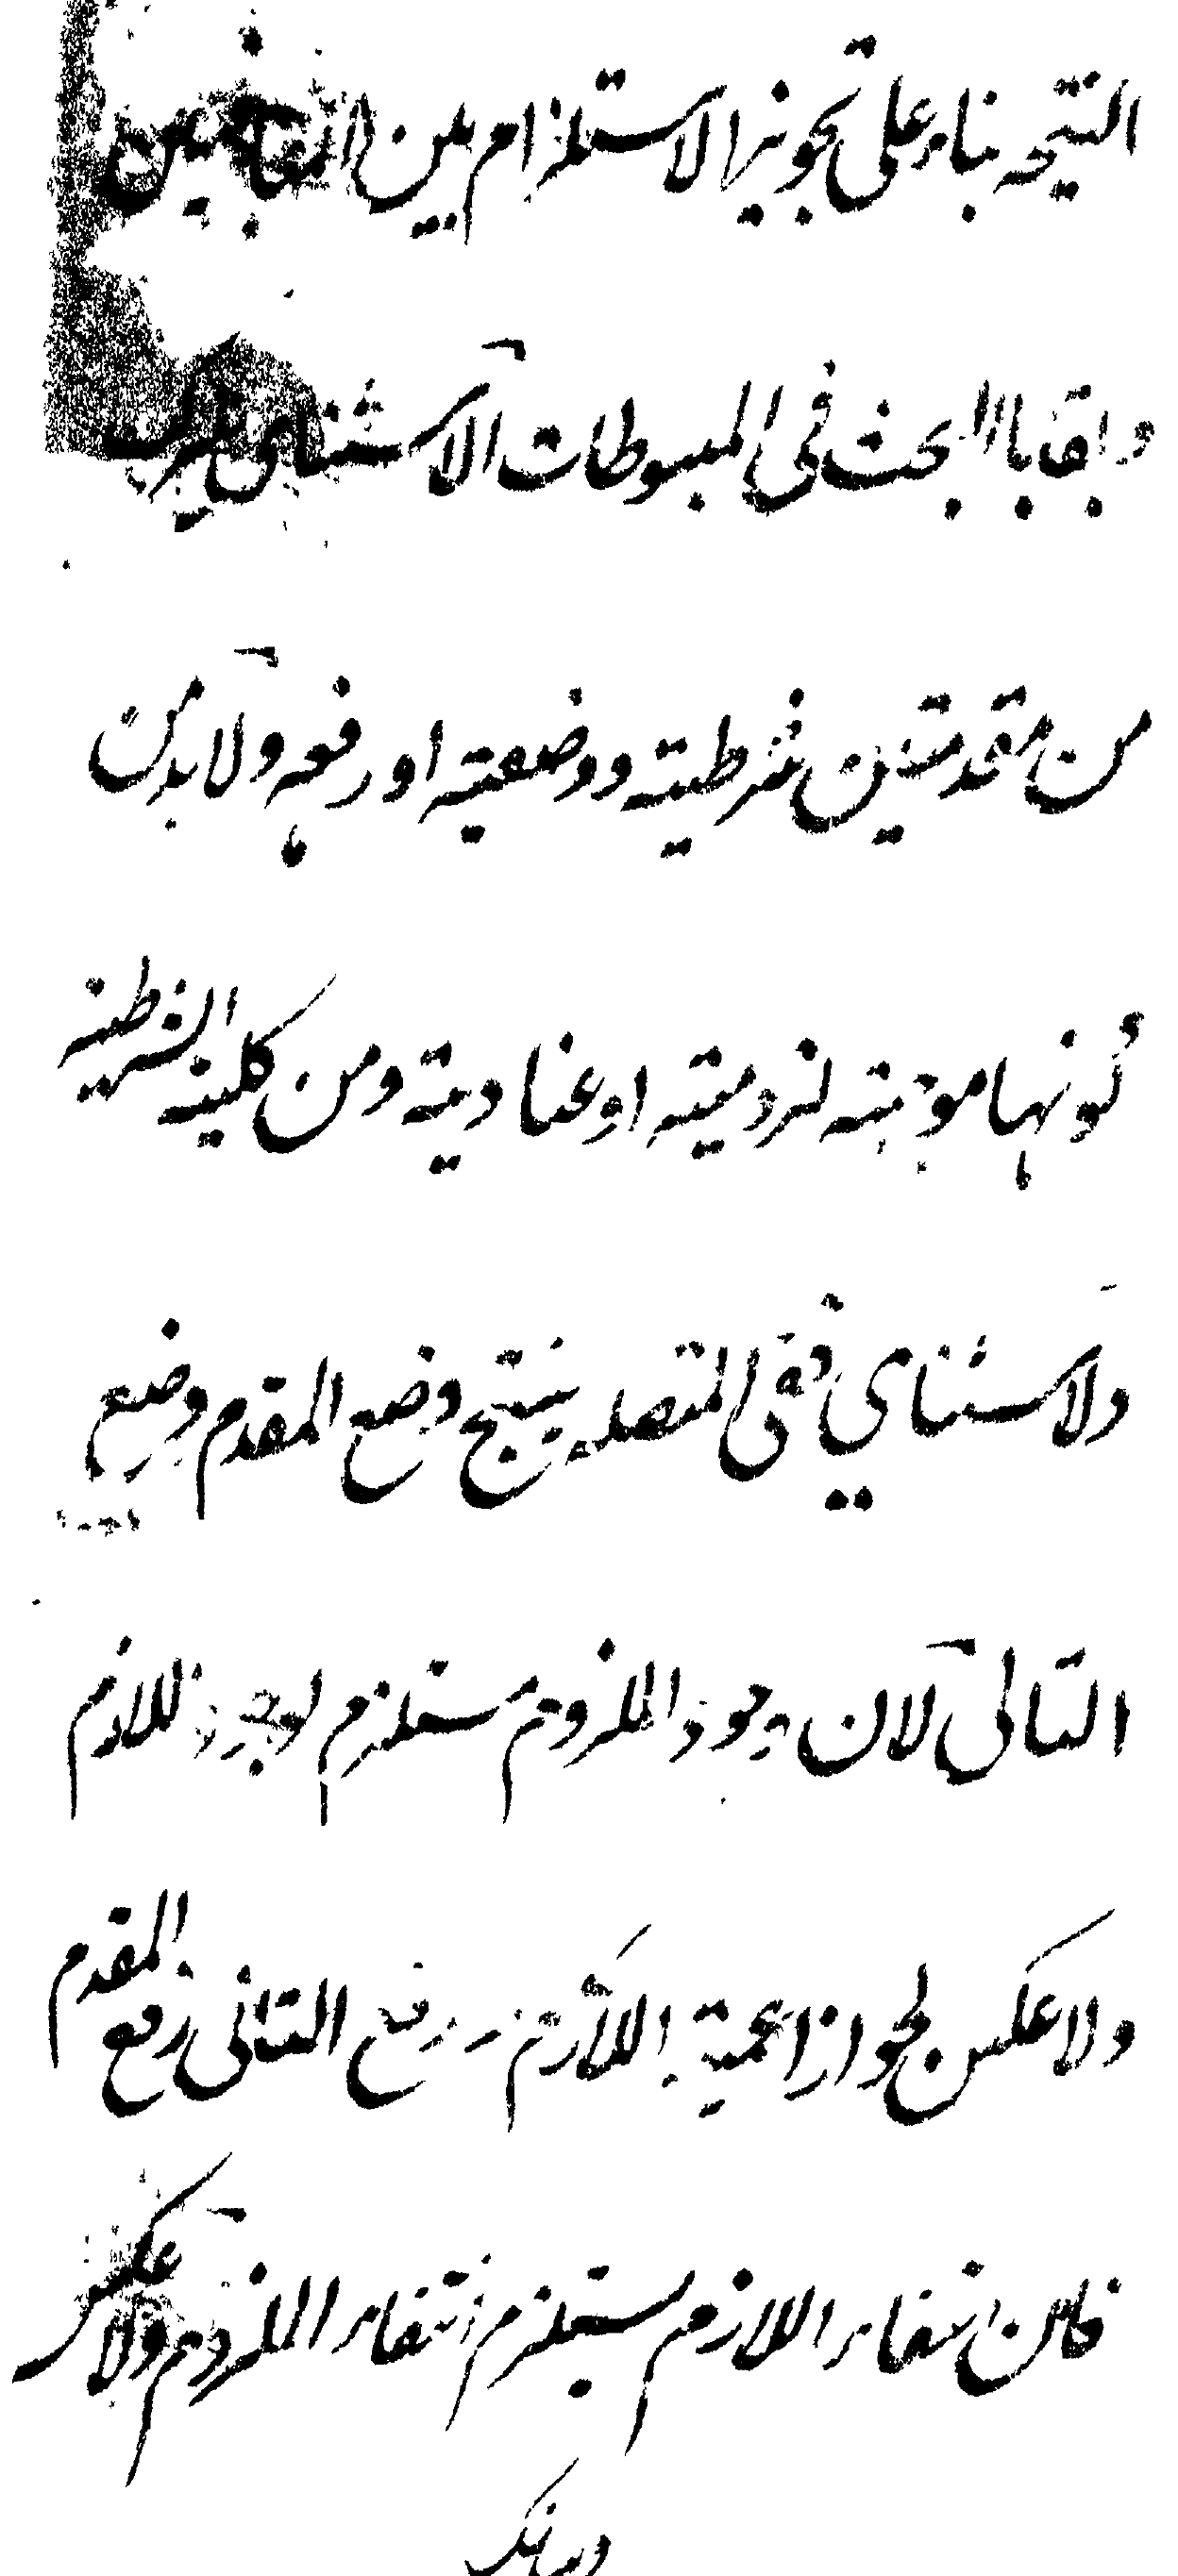 النتيجه بناء على تجويز الاستلزام بين المتنافيين
وبقايا البحث فى المبسوطات الاستثناى يتركب
من مقدمتين شرطية ووضعية او رفعه ولا بد من
كونها موجبة لزومية او عنادية ومن كلية الشرطية
والاستثناي ففى المتصله ينتج وضع المقدم وضع
التالى لان وجود الملزوم مستلزم لوجود اللازم
ولا عكس لجواز اعمية اللازم ورفع التالى رفع المقدم
فان انتفاء اللازم يستلزم انتفاء الملزوم ولا عكس